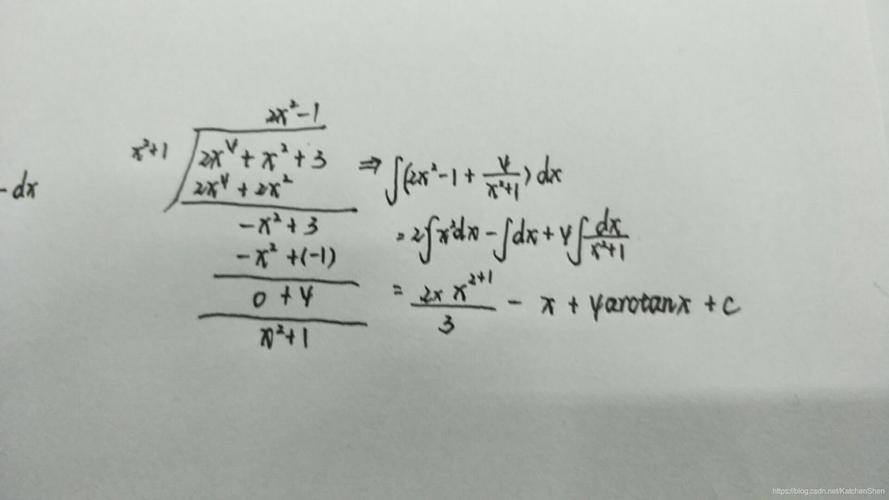 -dx
2x²-1
x²+1
2x⁴+x²+3
2x⁴+2x²
-x²+3
-x²+(-1)
0+4
x²+1
⇒∫(2x²-1+4/(x²+1))dx
=2∫x²dx-∫dx+4∫dx/(x²+1)
=(2x x²⁺¹)/3 - x + 4arotanx + C
https://blog.csdn.net/KatchenShen